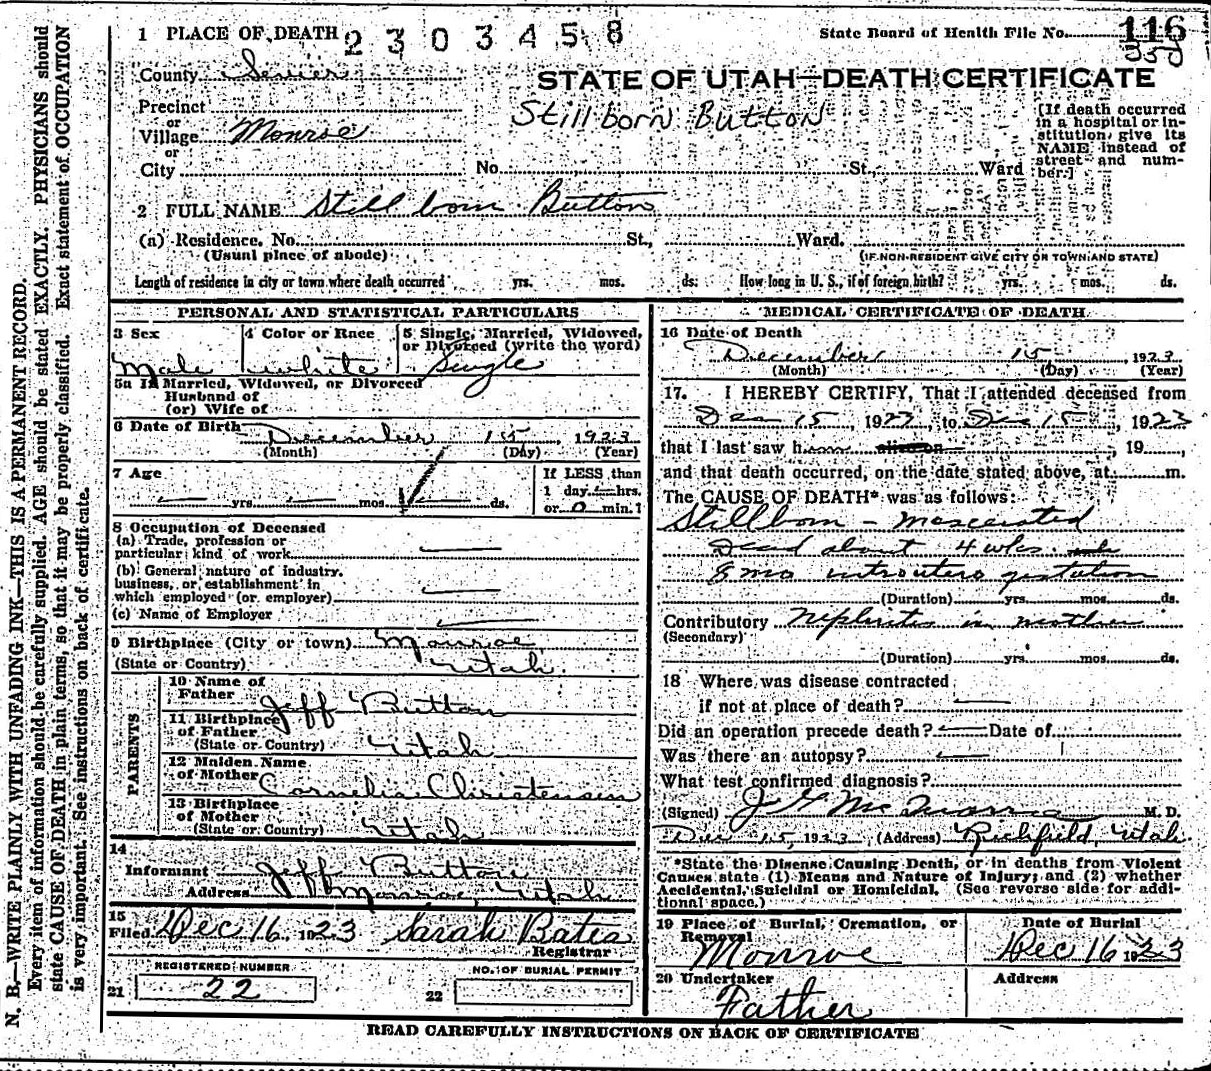 1 PLACE OF DEATH 2303458 State Board of Health File No. 116
County Sevier
STATE OF UTAH—DEATH CERTIFICATE
Precinct
or
Village Monroe
or
City No. St., Ward
Stillborn Button
[If death occurred
in a hospital or in-
stitution, give its
NAME instead of
street and num-
ber.]
2 FULL NAME Still born Button
(a) Residence. No. St., Ward.
(Usual place of abode) (IF NON-RESIDENT GIVE CITY OR TOWN AND STATE)
Length of residence in city or town where death occurred yrs. mos. ds. How long in U. S., if of foreign birth? yrs. mos. ds.
PERSONAL AND STATISTICAL PARTICULARS
3 Sex 4 Color or Race 5 Single, Married, Widowed,
or Divorced (write the word)
Male white Single
5a If Married, Widowed, or Divorced
Husband of
(or) Wife of
6 Date of Birth December 15, 1923
(Month) (Day) (Year)
7 Age If LESS than
yrs. mos. ds. 1 day, hrs.
or 0 min.?
8 Occupation of Deceased
(a) Trade, profession or
particular kind of work
(b) General nature of industry,
business, or establishment in
which employed (or employer)
(c) Name of Employer
9 Birthplace (City or town) Monroe
(State or Country) Utah
PARENTS
10 Name of
Father Jeff Button
11 Birthplace
of Father
(State or Country) Utah
12 Maiden Name
of Mother Cornelia Christensen
13 Birthplace
of Mother
(State or Country) Utah
14
Informant Jeff Button
Address Monroe, Utah
15
Filed Dec 16, 1923 Sarah Bates
Registrar
REGISTERED NUMBER NO. OF BURIAL PERMIT
21 22 22
MEDICAL CERTIFICATE OF DEATH
16 Date of Death
December 15, 1923
(Month) (Day) (Year)
17. I HEREBY CERTIFY, That I attended deceased from
Dec 15, 1923, to Dec 15, 1923
that I last saw h alive on , 19 ,
and that death occurred, on the date stated above, at m.
The CAUSE OF DEATH* was as follows:
Stillborn - Mascerated
Dead about 4 wks.
8 mo intrautero gestation
(Duration) yrs. mos. ds.
Contributory Nephritis in mother
(Secondary)
(Duration) yrs. mos. ds.
18 Where was disease contracted
if not at place of death?
Did an operation precede death? Date of
Was there an autopsy?
What test confirmed diagnosis?
(Signed) M. D.
Dec 15, 1923 (Address) Richfield, Utah
*State the Disease Causing Death, or in deaths from Violent
Causes state (1) Means and Nature of Injury; and (2) whether
Accidental, Suicidal or Homicidal. (See reverse side for addi-
tional space.)
19 Place of Burial, Cremation, or
Removal Date of Burial
Monroe Dec 16 1923
20 Undertaker Address
Father
READ CAREFULLY INSTRUCTIONS ON BACK OF CERTIFICATE
N. B.—WRITE PLAINLY WITH UNFADING INK—THIS IS A PERMANENT RECORD.
Every item of information should be carefully supplied. AGE should be stated EXACTLY. PHYSICIANS should
state CAUSE OF DEATH in plain terms, so that it may be properly classified. Exact statement of OCCUPATION
is very important. See instructions on back of certificate.